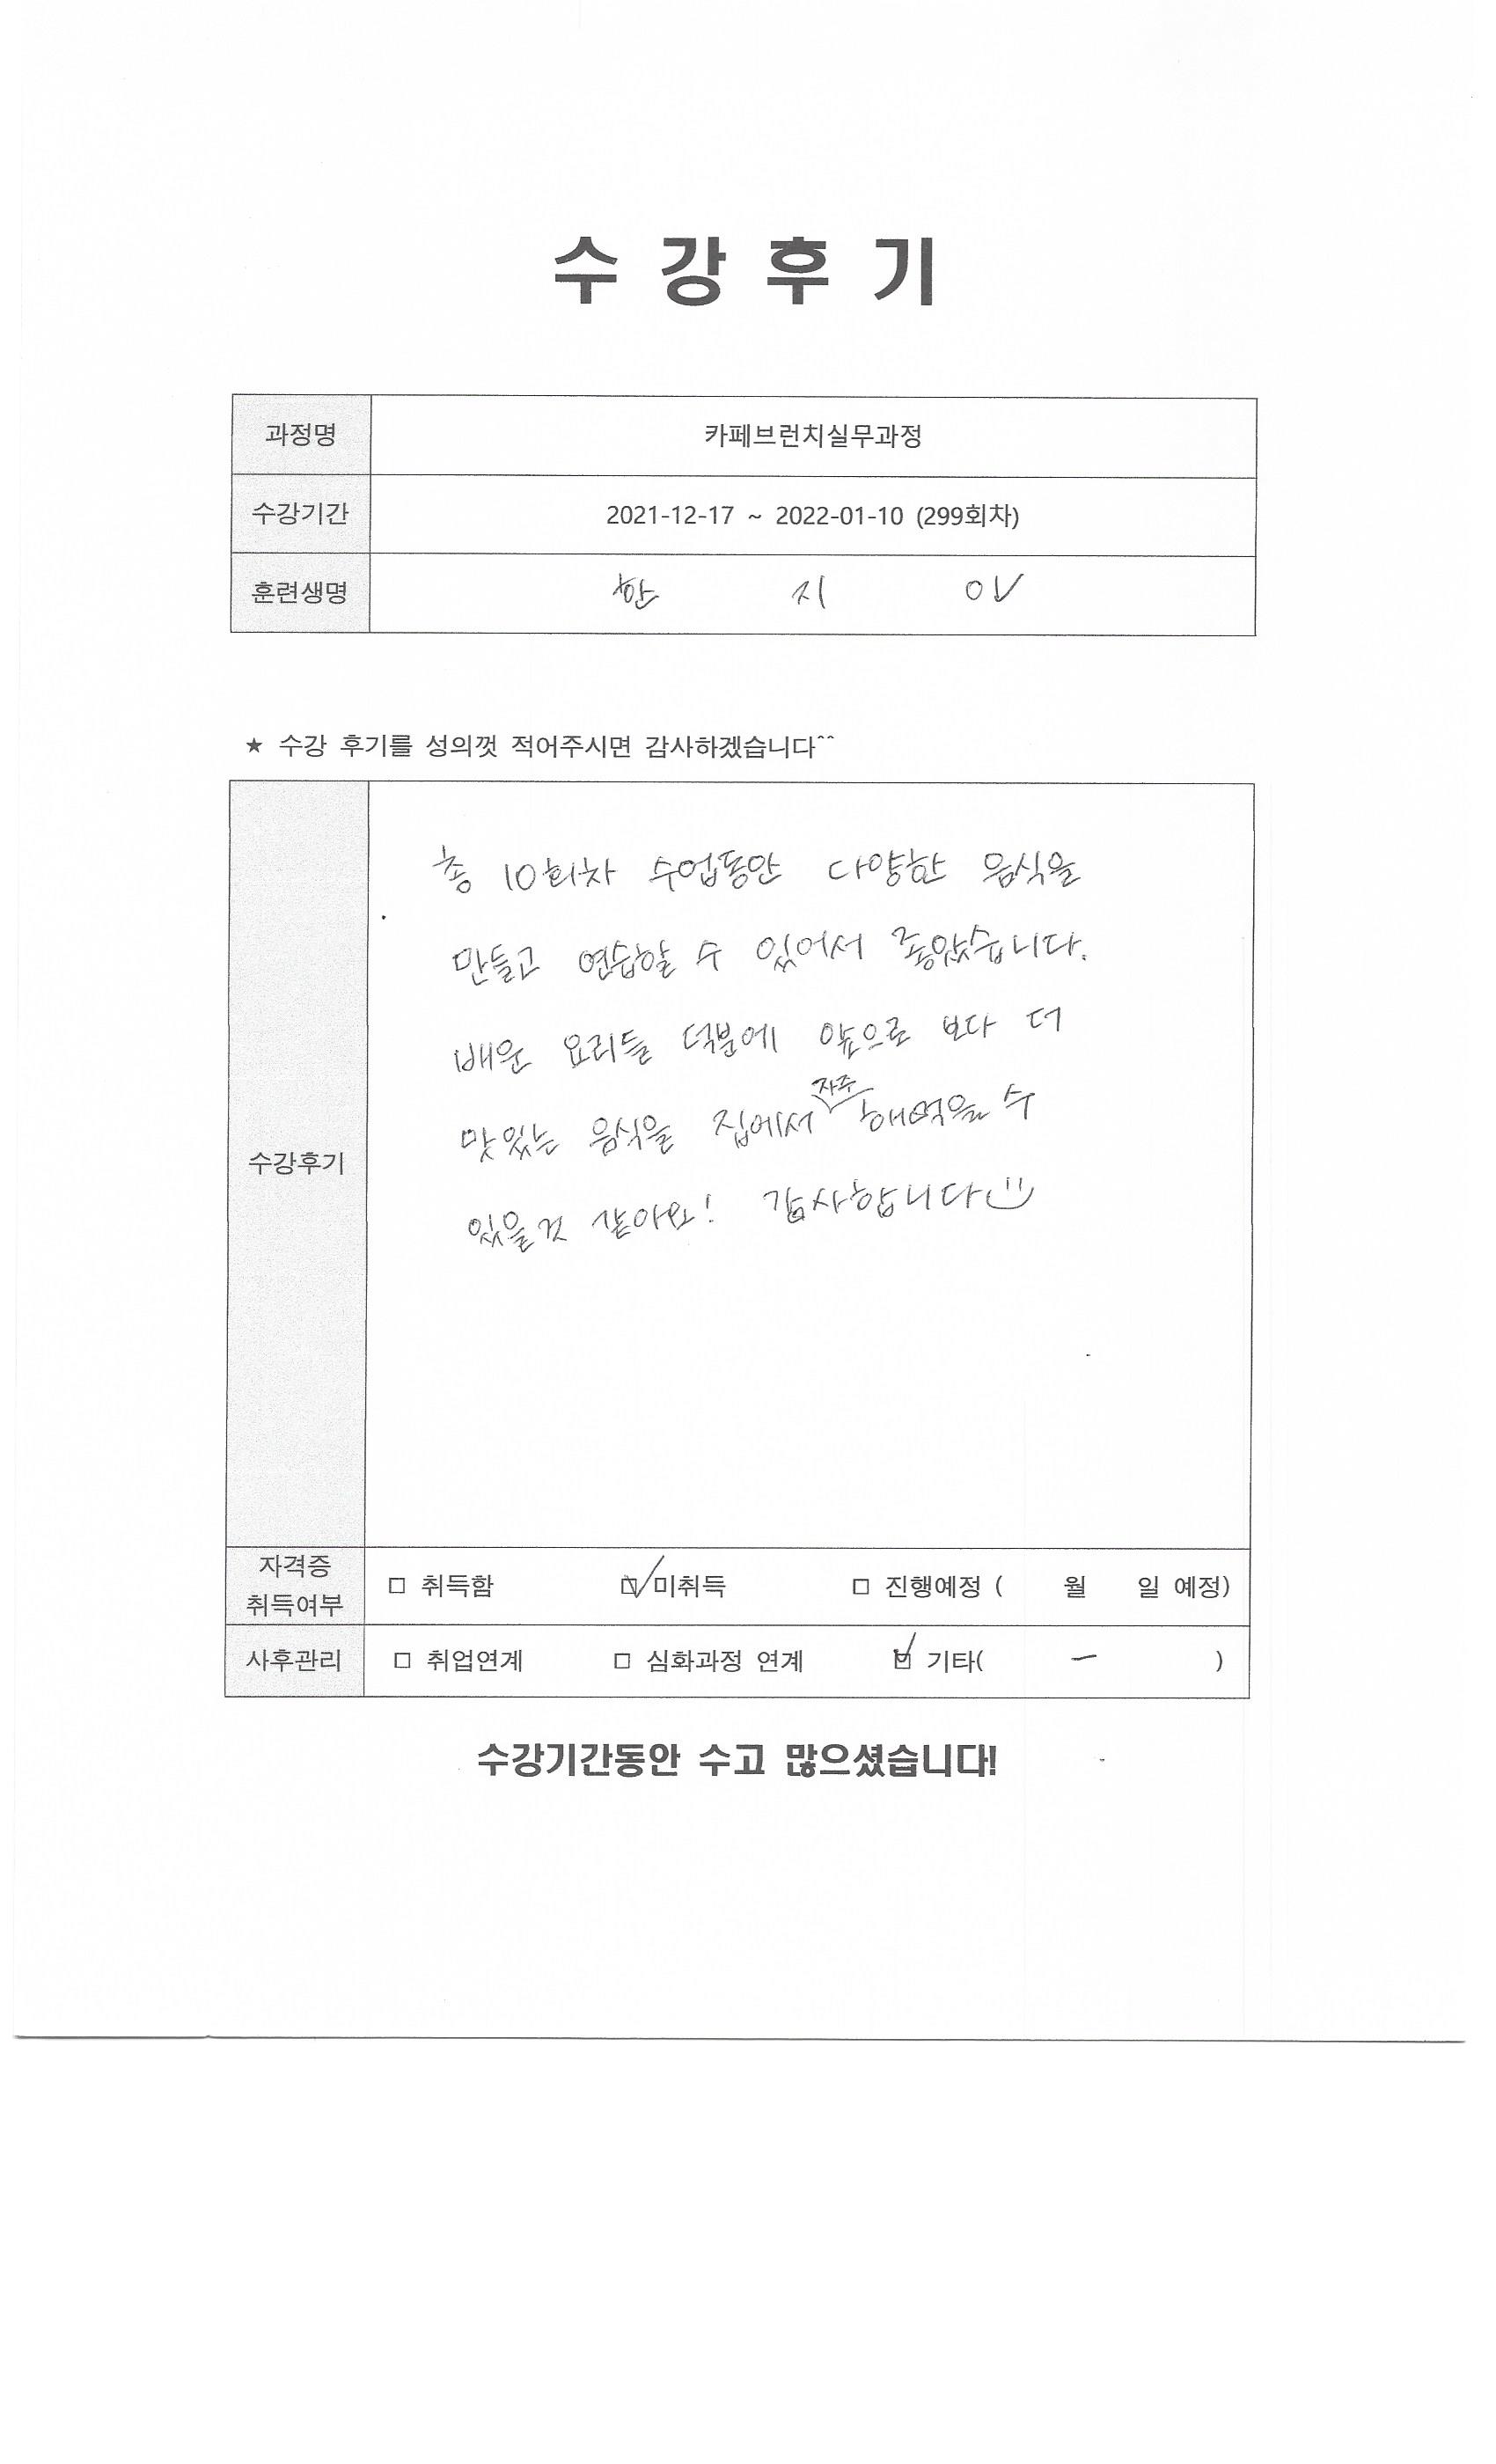 수 강 후 기
과정명 카페브런치실무과정
수강기간 2021-12-17 ~ 2022-01-10 (299회차)
훈련생명 한 지
★ 수강 후기를 성의껏 적어주시면 감사하겠습니다^^
총 10회차 수업동안 다양한 음식을
만들고 연습할 수 있어서 좋았습니다.
배운 요리들 덕분에 앞으로 보다 더
맛있는 음식을 집에서 자주 해먹을 수
수강후기
있을것 같아요! 감사합니다
자격증
취득여부
□ 취득함 ☑ 미취득 □ 진행예정 ( 월 일 예정)
사후관리 □ 취업연계 □ 심화과정 연계 ☑ 기타( - )
수강기간동안 수고 많으셨습니다!